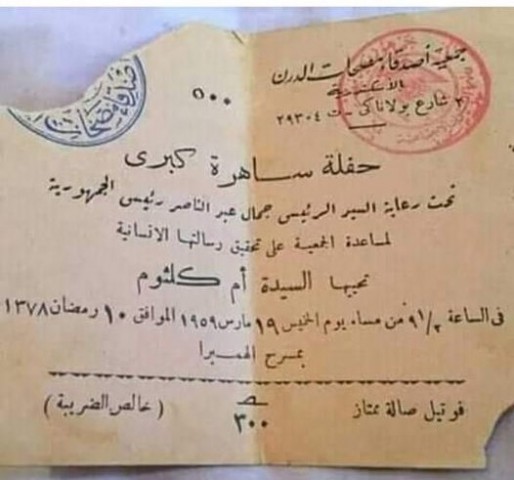 جمعية أصدقاء مصحات الدرن
الاسكندرية
٢ شارع بولاناكى - ت ٢٩٣٠٤
٥٠٠
أصدقاء مصحات
حفلة ساهرة كبرى
تحت رعاية السيد الرئيس جمال عبد الناصر رئيس الجمهورية
لمساعدة الجمعية على تحقيق رسالتها الانسانية
تحييها السيدة أم كلثوم
فى الساعة ٩١/٢ من مساء يوم الخميس ١٩ مارس ١٩٥٩ الموافق ١٠ رمضان ١٣٧٨
بمسرح الهمبرا
فوتيل صالة ممتاز ٣٠٠ (خالص الضريبة)